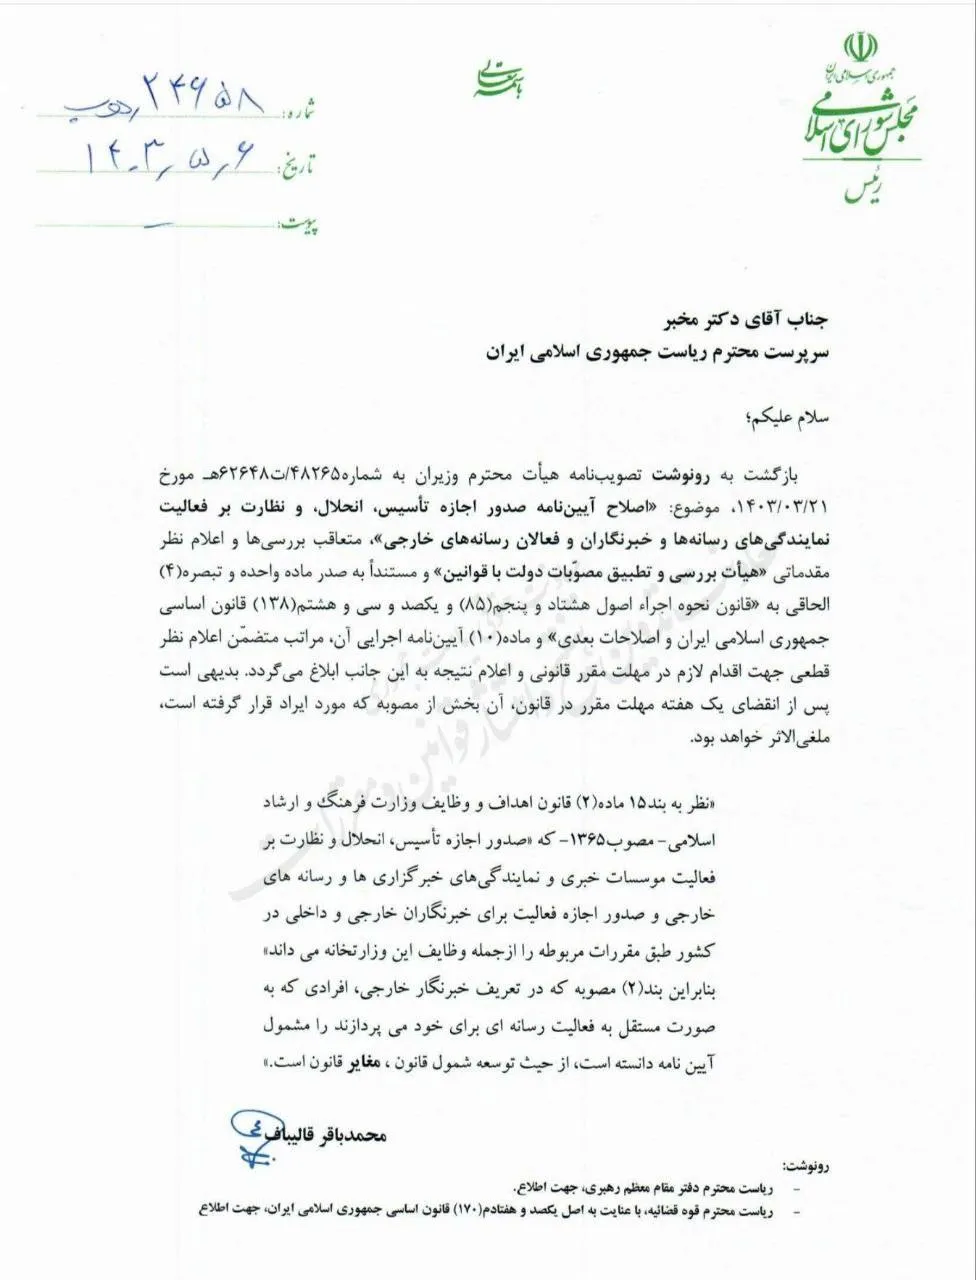 جمهوری اسلامی ایران
مجلس شورای اسلامی
رئیس
باسمه تعالی
شماره: ۲۴۶۵۸
تاریخ: ۱۴۰۳٫۵٫۶
پیوست: ـ
جناب آقای دکتر مخبر
سرپرست محترم ریاست جمهوری اسلامی ایران
سلام علیکم؛
بازگشت به رونوشت تصویب‌نامه هیأت محترم وزیران به شماره۴۸۲۶۵/ت۶۲۶۴۸هـ مورخ
۱۴۰۳/۰۳/۲۱، موضوع: «اصلاح آیین‌نامه صدور اجازه تأسیس، انحلال، و نظارت بر فعالیت
نمایندگی‌های رسانه‌ها و خبرنگاران و فعالان رسانه‌های خارجی»، متعاقب بررسی‌ها و اعلام نظر
مقدماتی «هیأت بررسی و تطبیق مصوّبات دولت با قوانین» و مستنداً به صدر ماده واحده و تبصره(۴)
الحاقی به «قانون نحوه اجراء اصول هشتاد و پنجم(۸۵) و یکصد و سی و هشتم(۱۳۸) قانون اساسی
جمهوری اسلامی ایران و اصلاحات بعدی» و ماده(۱۰) آیین‌نامه اجرایی آن، مراتب متضمّن اعلام نظر
قطعی جهت اقدام لازم در مهلت مقرر قانونی و اعلام نتیجه به این جانب ابلاغ می‌گردد. بدیهی است
پس از انقضای یک هفته مهلت مقرر در قانون، آن بخش از مصوبه که مورد ایراد قرار گرفته است،
ملغی‌الاثر خواهد بود.
«نظر به بند۱۵ ماده(۲) قانون اهداف و وظایف وزارت فرهنگ و ارشاد
اسلامی- مصوب۱۳۶۵- که «صدور اجازه تأسیس، انحلال و نظارت بر
فعالیت موسسات خبری و نمایندگی‌های خبرگزاری ها و رسانه های
خارجی و صدور اجازه فعالیت برای خبرنگاران خارجی و داخلی در
کشور طبق مقررات مربوطه را ازجمله وظایف این وزارتخانه می داند»
بنابراین بند(۲) مصوبه که در تعریف خبرنگار خارجی، افرادی که به
صورت مستقل به فعالیت رسانه ای برای خود می پردازند را مشمول
آیین نامه دانسته است، از حیث توسعه شمول قانون ، مغایر قانون است.»
محمدباقر قالیباف
رونوشت:
- ریاست محترم دفتر مقام معظم رهبری، جهت اطلاع.
- ریاست محترم قوه قضائیه، با عنایت به اصل یکصد و هفتادم(۱۷۰) قانون اساسی جمهوری اسلامی ایران، جهت اطلاع